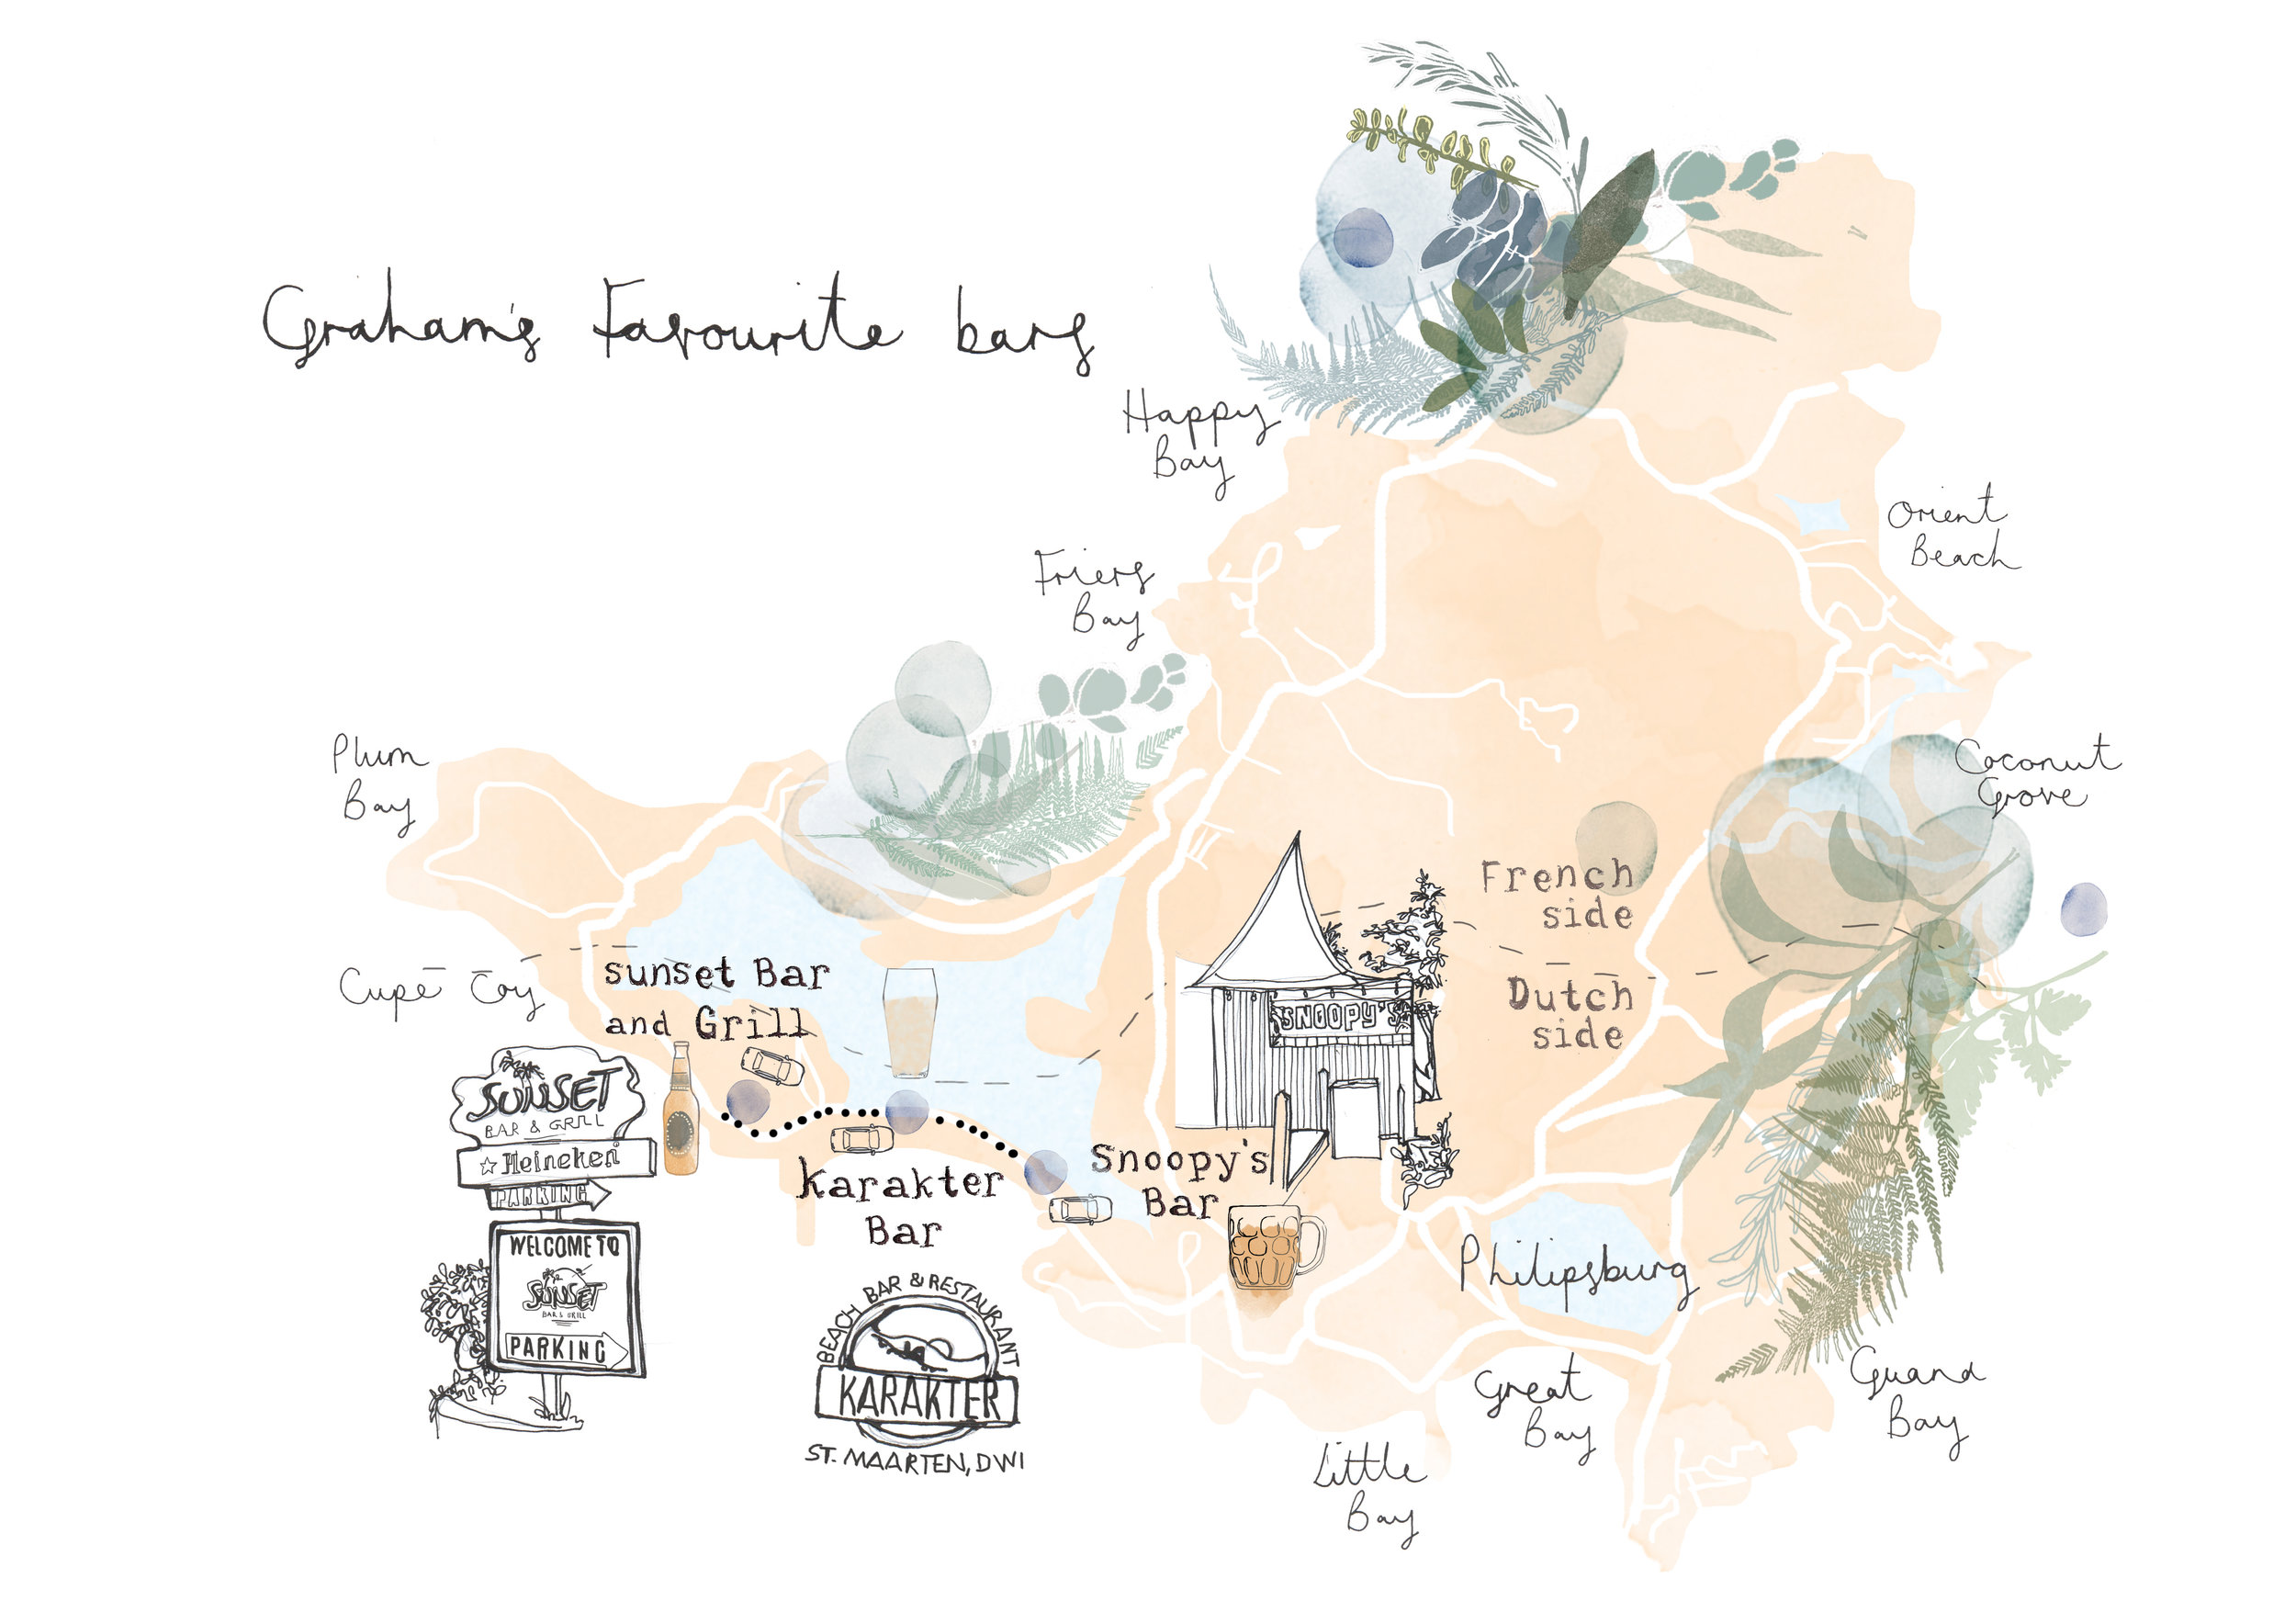 Graham's Favourite bars
Happy
Bay
Orient
Beach
Friers
Bay
Plum
Bay
Coconut
Grove
French
side
Dutch
side
Cupe Coy
sunset Bar
and Grill
SNOOPY'S
SUNSET
BAR & GRILL
Heineken
PARKING
WELCOME TO
SUNSET
BAR & GRILL
PARKING
Karakter
Bar
Snoopy's
Bar
BEACH BAR & RESTAURANT
KARAKTER
ST. MAARTEN, DWI
Philipsburg
Great
Bay
Guana
Bay
Little
Bay